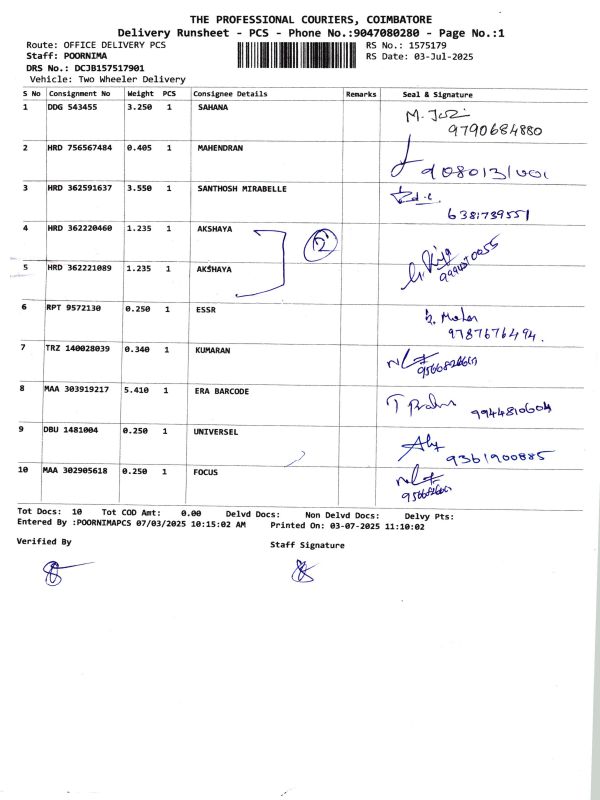 THE PROFESSIONAL COURIERS, COIMBATORE
Delivery Runsheet - PCS - Phone No.:9047080280 - Page No.:1
Route: OFFICE DELIVERY PCS RS No.: 1575179
Staff: POORNIMA RS Date: 03-Jul-2025
DRS No.: DCJB157517901
Vehicle: Two Wheeler Delivery
S No Consignment No Weight PCS Consignee Details Remarks Seal & Signature
1 DDG 543455 3.250 1 SAHANA
9790684880
2 HRD 756567484 0.405 1 MAHENDRAN
3 HRD 362591637 3.550 1 SANTHOSH MIRABELLE
6381739551
4 HRD 362220460 1.235 1 AKSHAYA
2
5 HRD 362221089 1.235 1 AKSHAYA
6 RPT 9572130 0.250 1 ESSR
9787676494.
7 TRZ 140028039 0.340 1 KUMARAN
8 MAA 303919217 5.410 1 ERA BARCODE
9944810604
9 DBU 1481004 0.250 1 UNIVERSEL
9361900885
10 MAA 302905618 0.250 1 FOCUS
Tot Docs: 10 Tot COD Amt: 0.00 Delvd Docs: Non Delvd Docs: Delvy Pts:
Entered By :POORNIMAPCS 07/03/2025 10:15:02 AM Printed On: 03-07-2025 11:10:02
Verified By Staff Signature